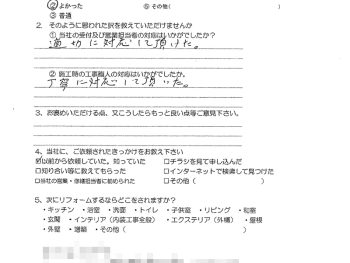 ② よかった ⑤ その他( )
③ 普通
2. そのように思われた訳を教えていただけませんか
① 当社の受付及び営業担当者の対応はいかがでしたか?
適切に対応して頂けた。
② 施工時の工事職人の対応はいかがでしたか。
丁寧に対応して頂いた。
3. お褒めいただける点、又こうしたらもっと良い点等ご意見下さい。
4. 当社に、ご依頼されたきっかけをお教え下さい
☑以前から依頼していた。知っていた □チラシを見て申し込んだ
□知り合い等に教えてもらった □インターネットで検索して見つけた
□当社の営業・体構担当者に勧められた □その他( )
5. 次にリフォームするならどこをされますか?
・キッチン ・浴室 ・洗面 ・トイレ ・子供室 ・リビング ・和室
・玄関 ・インテリア(内装工事全般) ・エクステリア(外構) ・屋根
・外壁 ・増築 ・その他( )